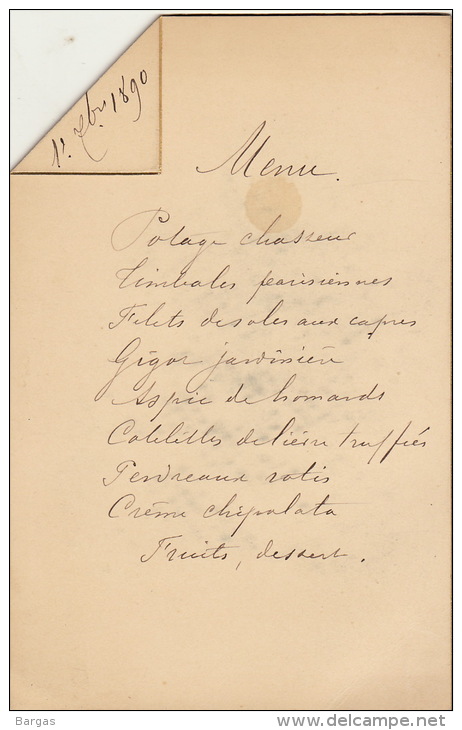 1r. Xbre 1890
Menu.
Potage chasseur
Timbales parisiennes
Filets de soles aux capres
Gigot jardinière
Aspic de homards
Cotelettes de lièvre truffées
Perdreaux rotis
Crème chipolata
Fruits, dessert.
Bargas
www.delcampe.net